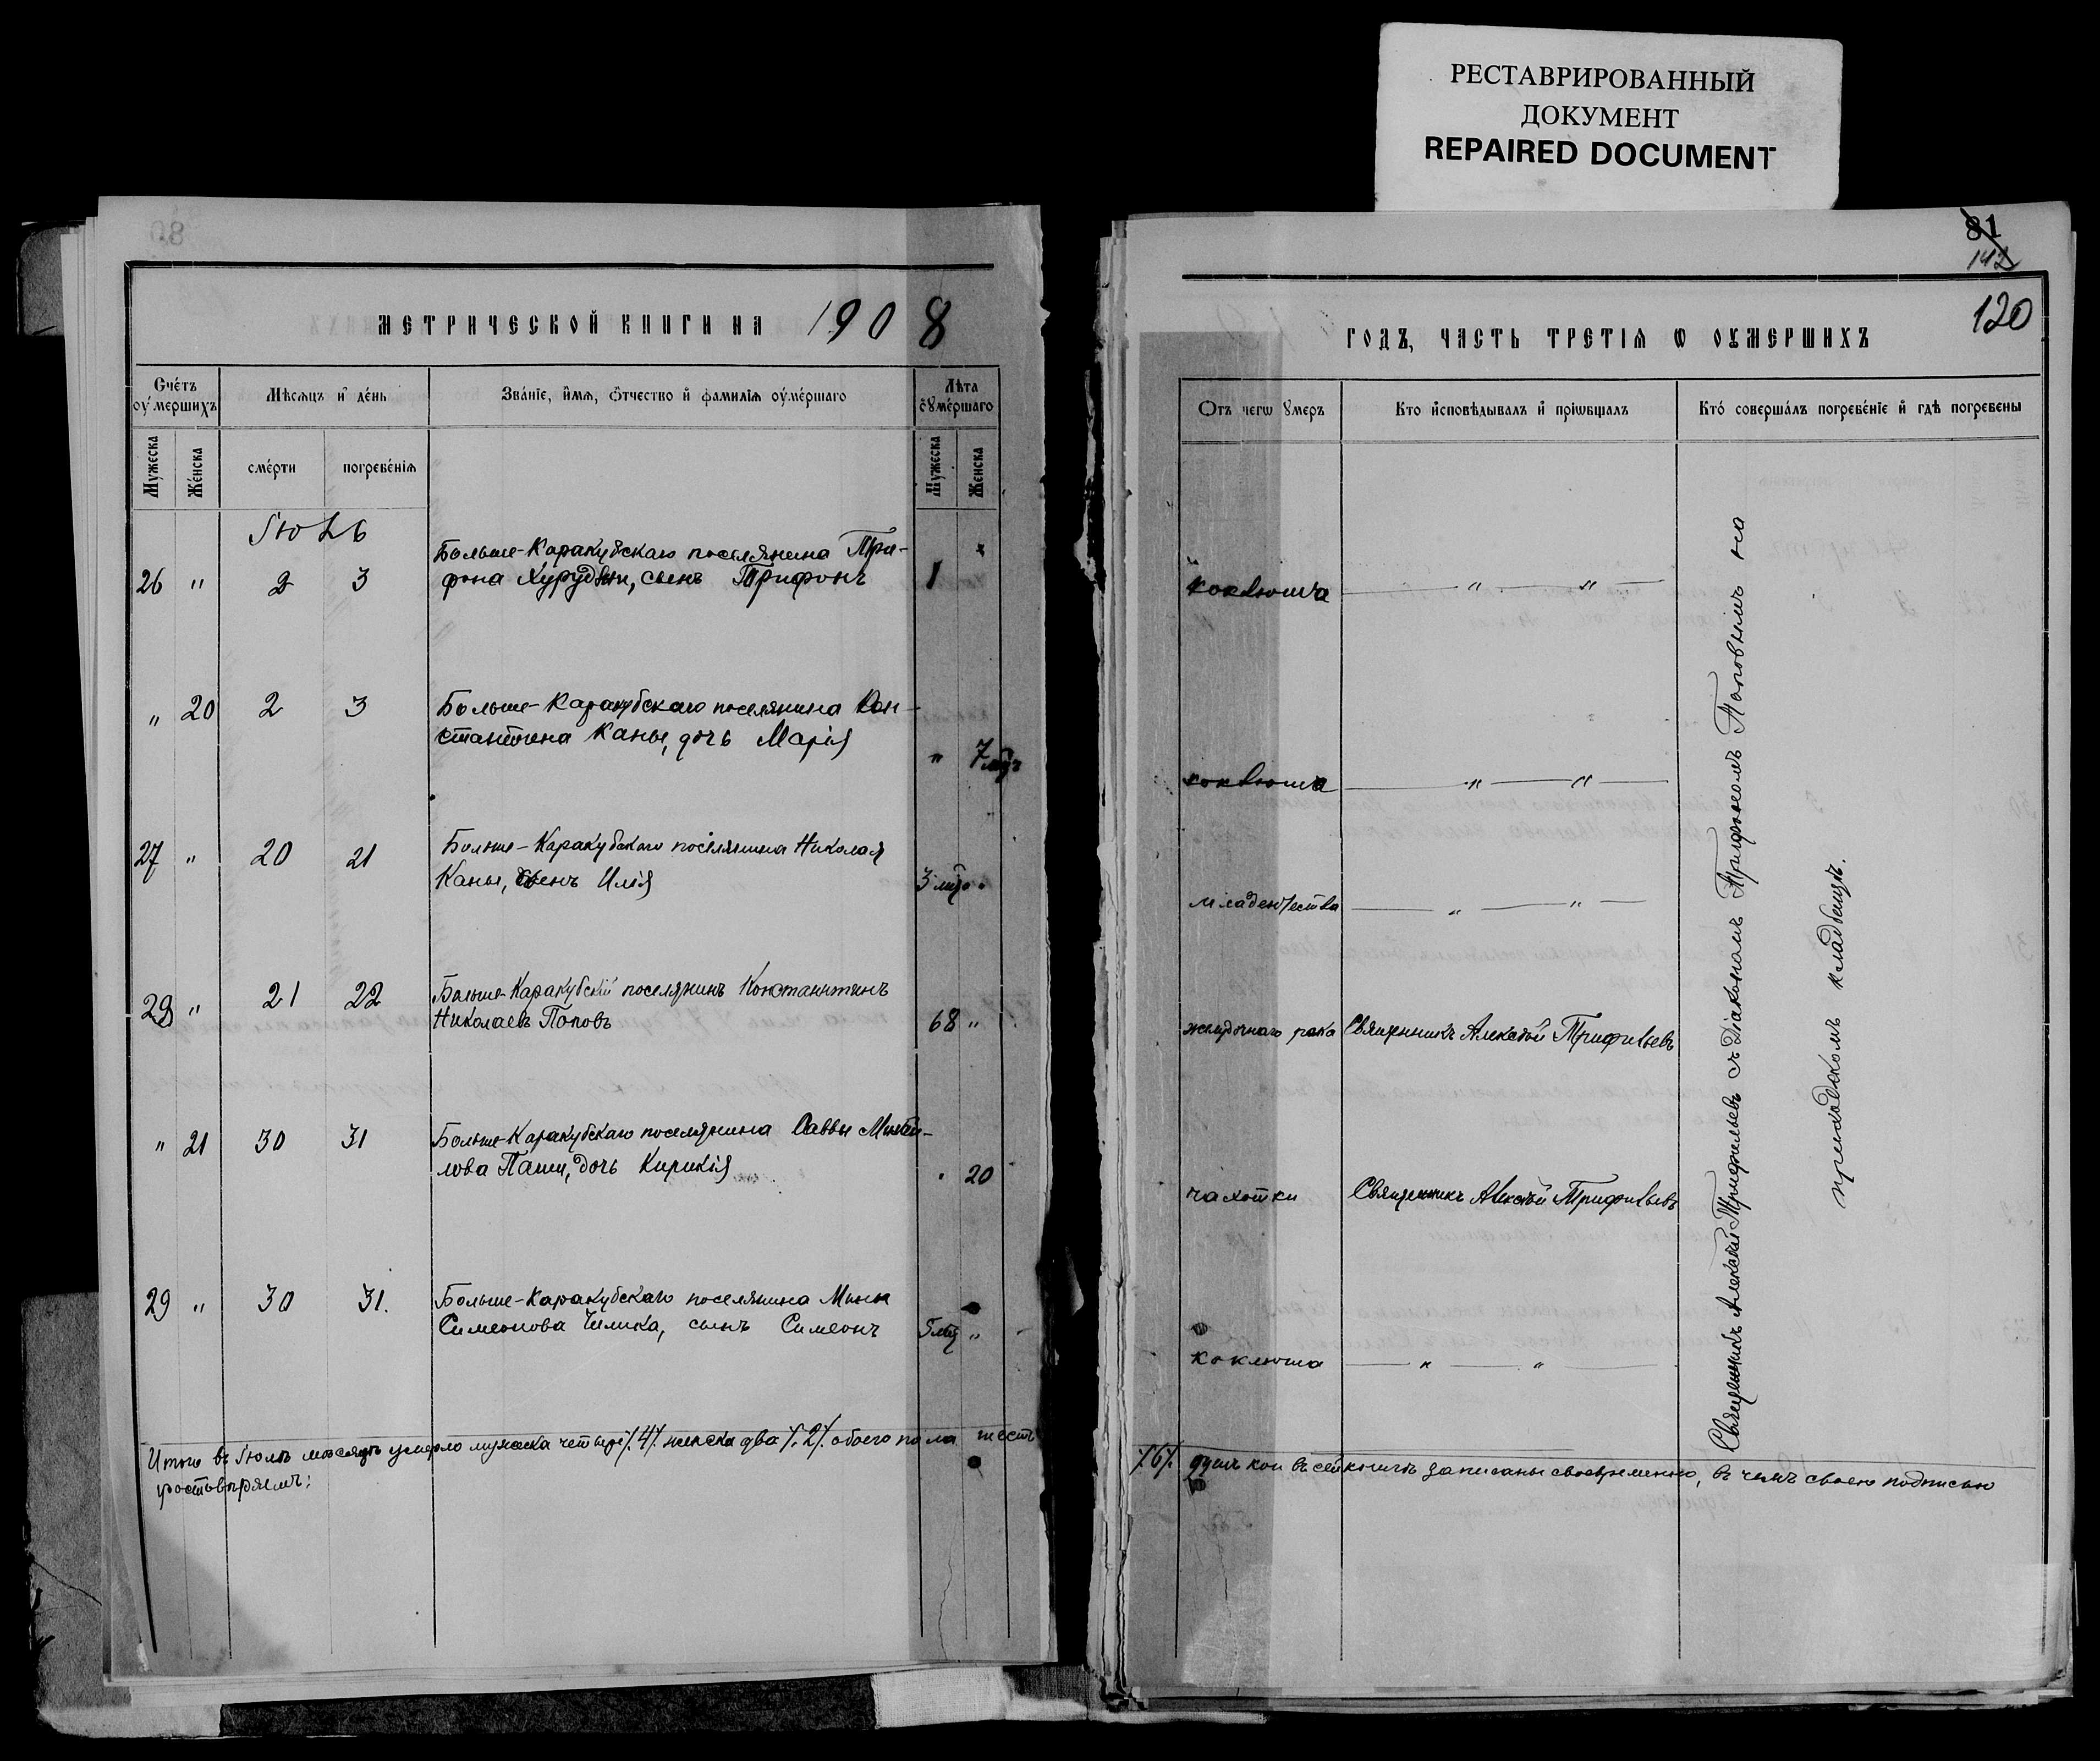 РЕСТАВРИРОВАННЫЙ
ДОКУМЕНТ
REPAIRED DOCUMENT
80
МЕТРИЧЕСКОЙ КНИГИ НА 1908
Счетъ оумершихъ
Мѣсяцъ и день
Званіе, имя, ѿчество и фамилія оумершаго
Лѣта оумершаго
Мужеска
Женска
смерти
погребенія
Мужеска
Женска
Іюль
26 " 2 3 Больше-Каракубскаго поселянина Три-
фона Хуруджи, сынъ Трифонъ 1
" 20 2 3 Больше-Каракубскаго поселянина Кон-
стантина Каны, дочь Марія " 7 мц
27 " 20 21 Больше-Каракубскаго поселянина Николая
Каны, сынъ Илія 3 мц "
29 " 21 22 Больше-Каракубскій поселянинъ Константинъ
Николаевъ Поповъ 68 "
" 21 30 31 Больше-Каракубскаго поселянина Саввы Михаи-
лова Паши, дочь Кирикія " 20
29 " 30 31. Больше-Каракубскаго поселянина Мины
Симеонова Челика, сынъ Симеонъ 5 мц "
Итого въ Іюлѣ мѣсяцѣ умерло мужеска четыре /.4/. женска два /.2/. обоего пола шесть
удостовѣряемъ:
81
142
120
ГОДЪ, ЧАСТЬ ТРЕТІЯ Ѡ ОУМЕРШИХЪ
Отъ чегѡ умеръ
Кто исповѣдывалъ и пріѡбщалъ
Кто совершалъ погребеніе и гдѣ погребены
коклюша " "
коклюша " "
младенчества " "
желудочнаго рака Священникъ Алексѣй Трифильевъ
чахотки Священникъ Алексѣй Трифильевъ
коклюша " "
Священникъ Алексѣй Трифильевъ съ Діакономъ Трифономъ Поповымъ на
приходскомъ кладбищѣ.
/.6/. душъ кои въ сей книгѣ записаны своевременно, въ чемъ своею подписью